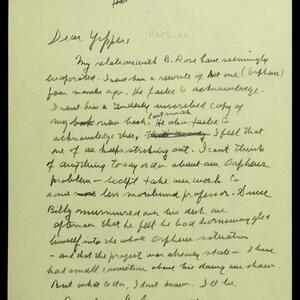 Dear Yipper (HARBURG)
My relations with B. Rose have seemingly
evaporated. I sent him a rewrite of Act one (Orpheus)
four months ago. He failed to acknowledge.
I sent him a tenderly inscribed copy of
my book last month. He also failed to
acknowledge this. I feel that
one of us keeps striking out. I can't think
of anything to say or do about our Orpheus
problem — except take our work to
some less moribund professor. Since
Billy murmured over his desk one
afternoon that he felt he had hornswoggled
himself into the whole Orpheus situation
— and that the project was already stale — I have
had small conviction about his doing our show.
But what to do, I don't know. I'll be